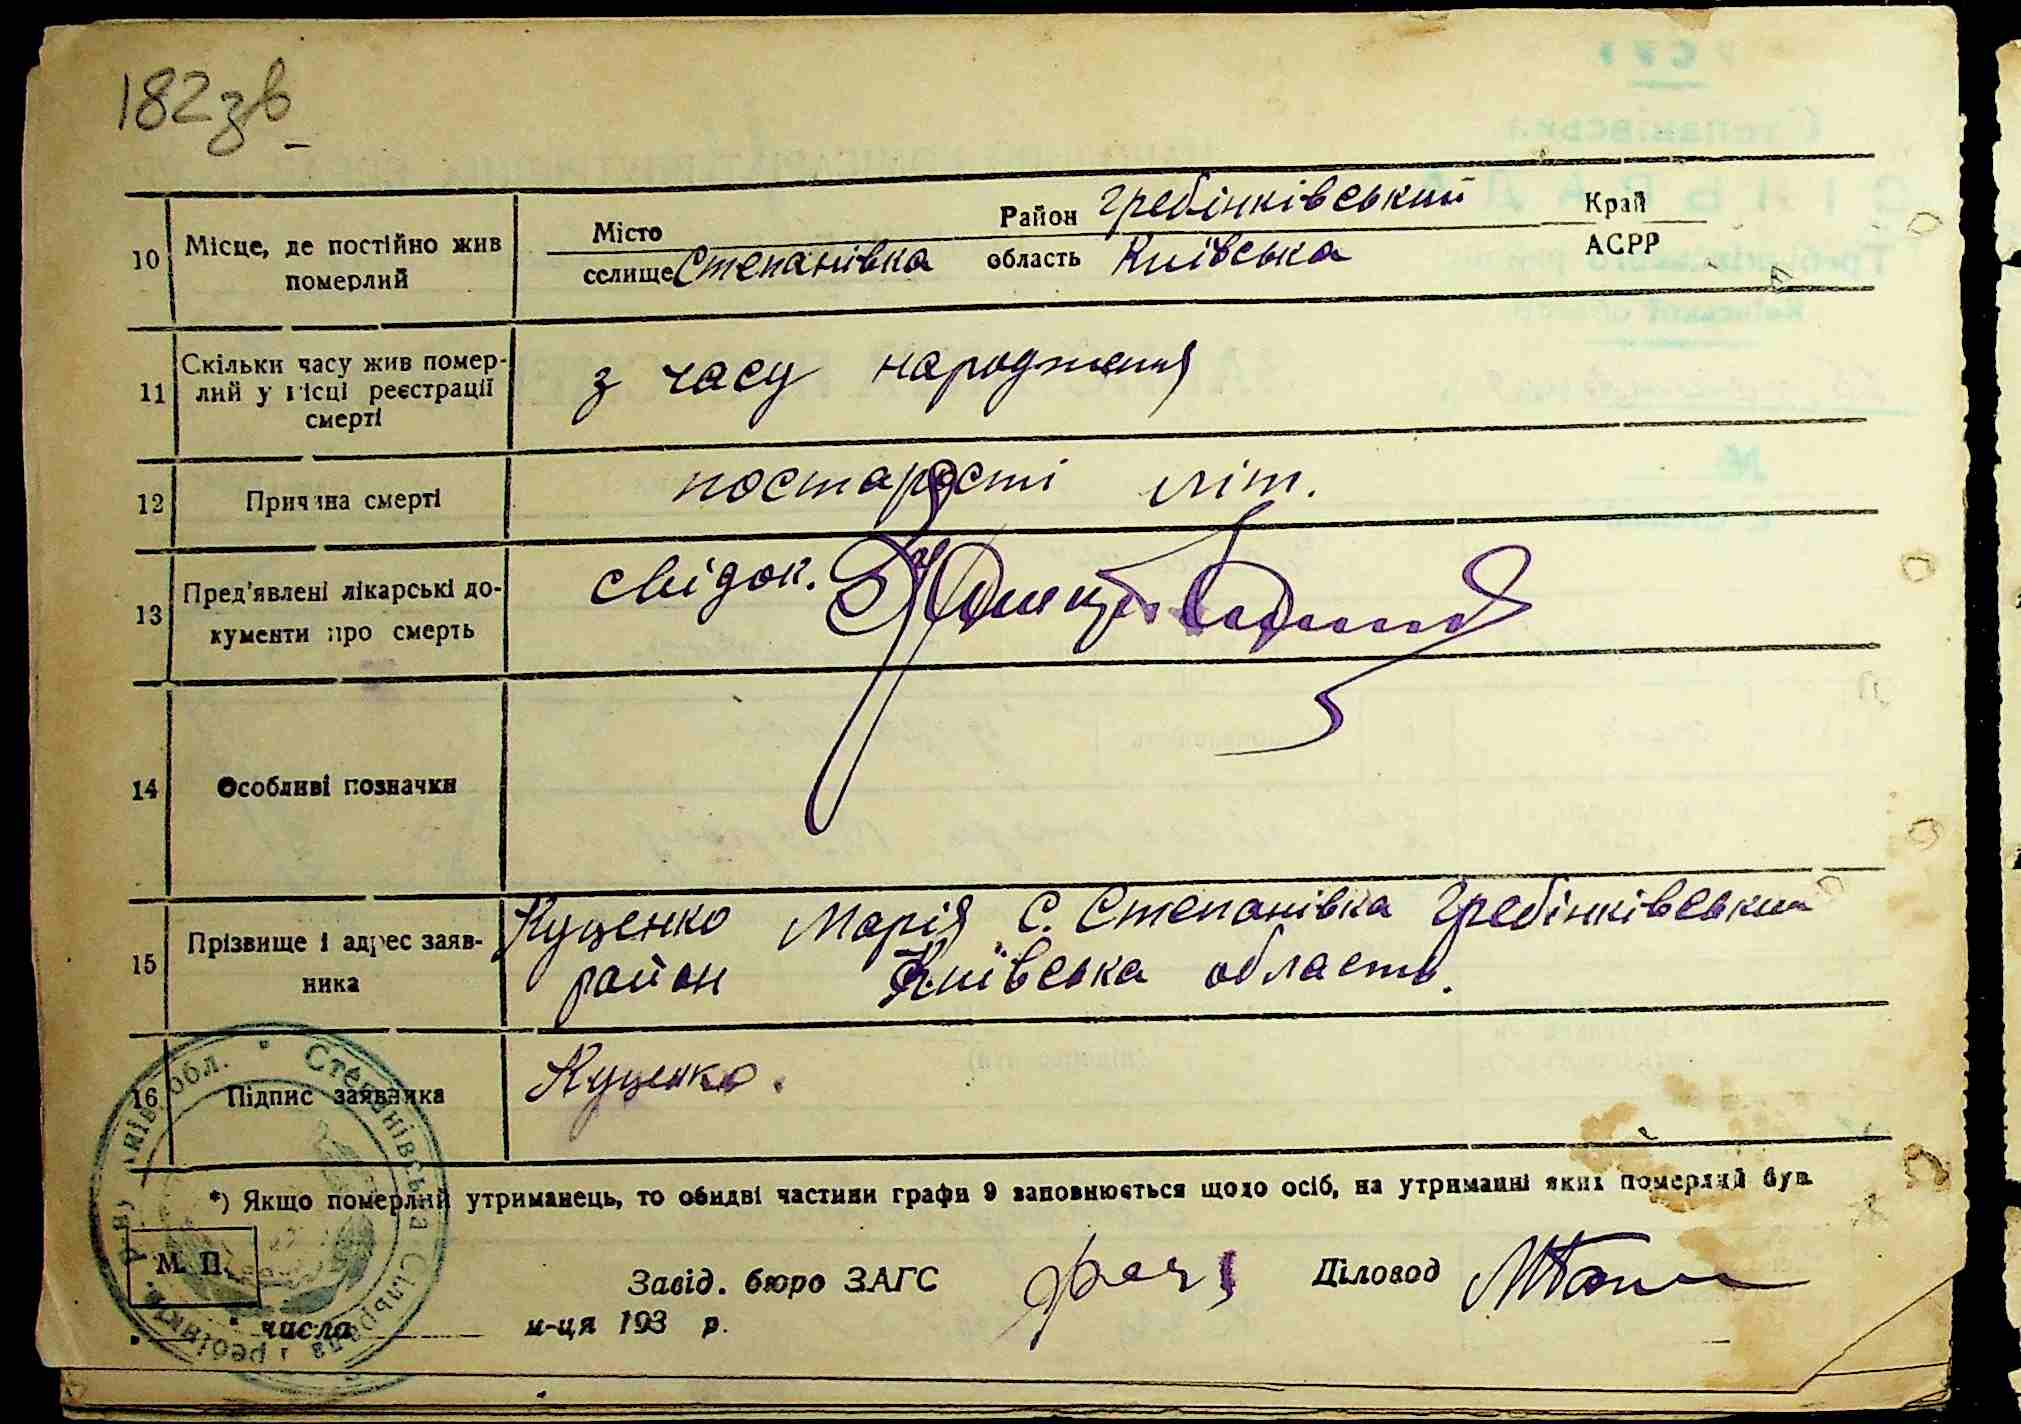 182 зв
Місто Район Гребінківський Край
10 Місце, де постійно жив
померлий
селище Степанівка область Київська АСРР
11 Скільки часу жив помер-
лий у місці реєстрації
смерті
з часу народження
12 Причина смерті
постарості літ.
13 Пред'явлені лікарські до-
кументи про смерть
свідок.
14 Особливі позначки
15 Прізвище і адрес заяв-
ника
Куценко Марія С. Степанівка Гребінківський
район Київська область.
16 Підпис заявника
Куценко.
*) Якщо померлий утриманець, то обидві частини графи 9 заповнюється щодо осіб, на утриманні яких померлий був.
М. П.
Завід. бюро ЗАГС Діловод
числа м-ця 193 р.
Степанівська Сільрада Гребінків. р-ну Київ. обл.